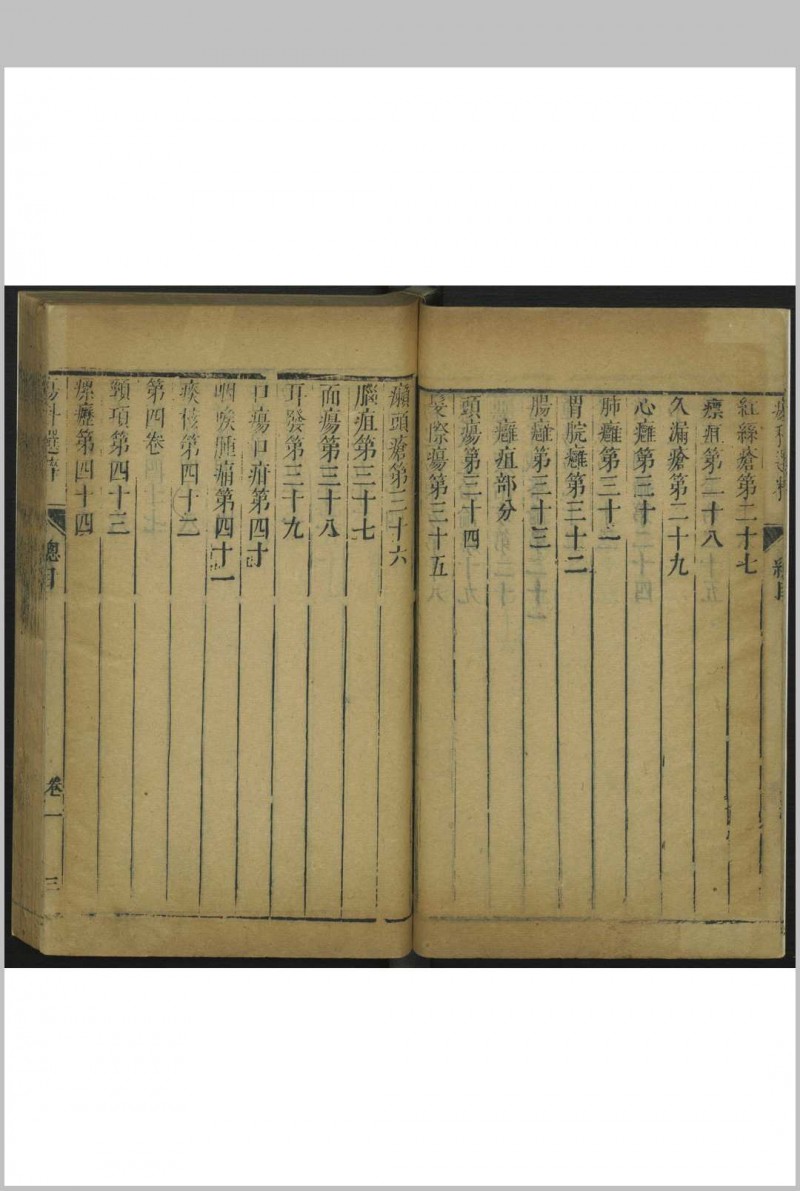 瘍科選粹 總目
紅絲瘡第二十七
瘭疽第二十八
久漏瘡第二十九
心癰第三十
肺癰第三十一
胃脘癰第三十二
腸癰第三十三
癰疽部分
頭瘍第三十四
髮際瘍第三十五
癩頭瘡第三十六
腦疽第三十七
面瘍第三十八
耳發第三十九
口瘍口疳第四十
咽喉腫痛第四十一
痰核第四十二
第四卷
頸項第四十三
瘰癧第四十四
瘍科選粹 總目 卷一 三